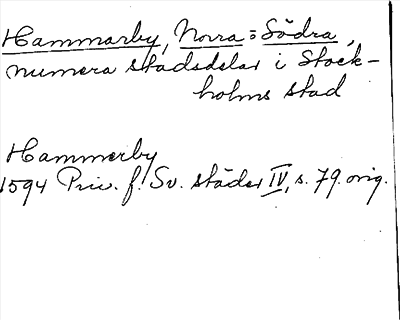 Hammarby, Norra o Södra,
numera stadsdelar i Stock-
holms stad
Hammerby
1594 Priv. f. Sv. städer IV, s. 79. orig.